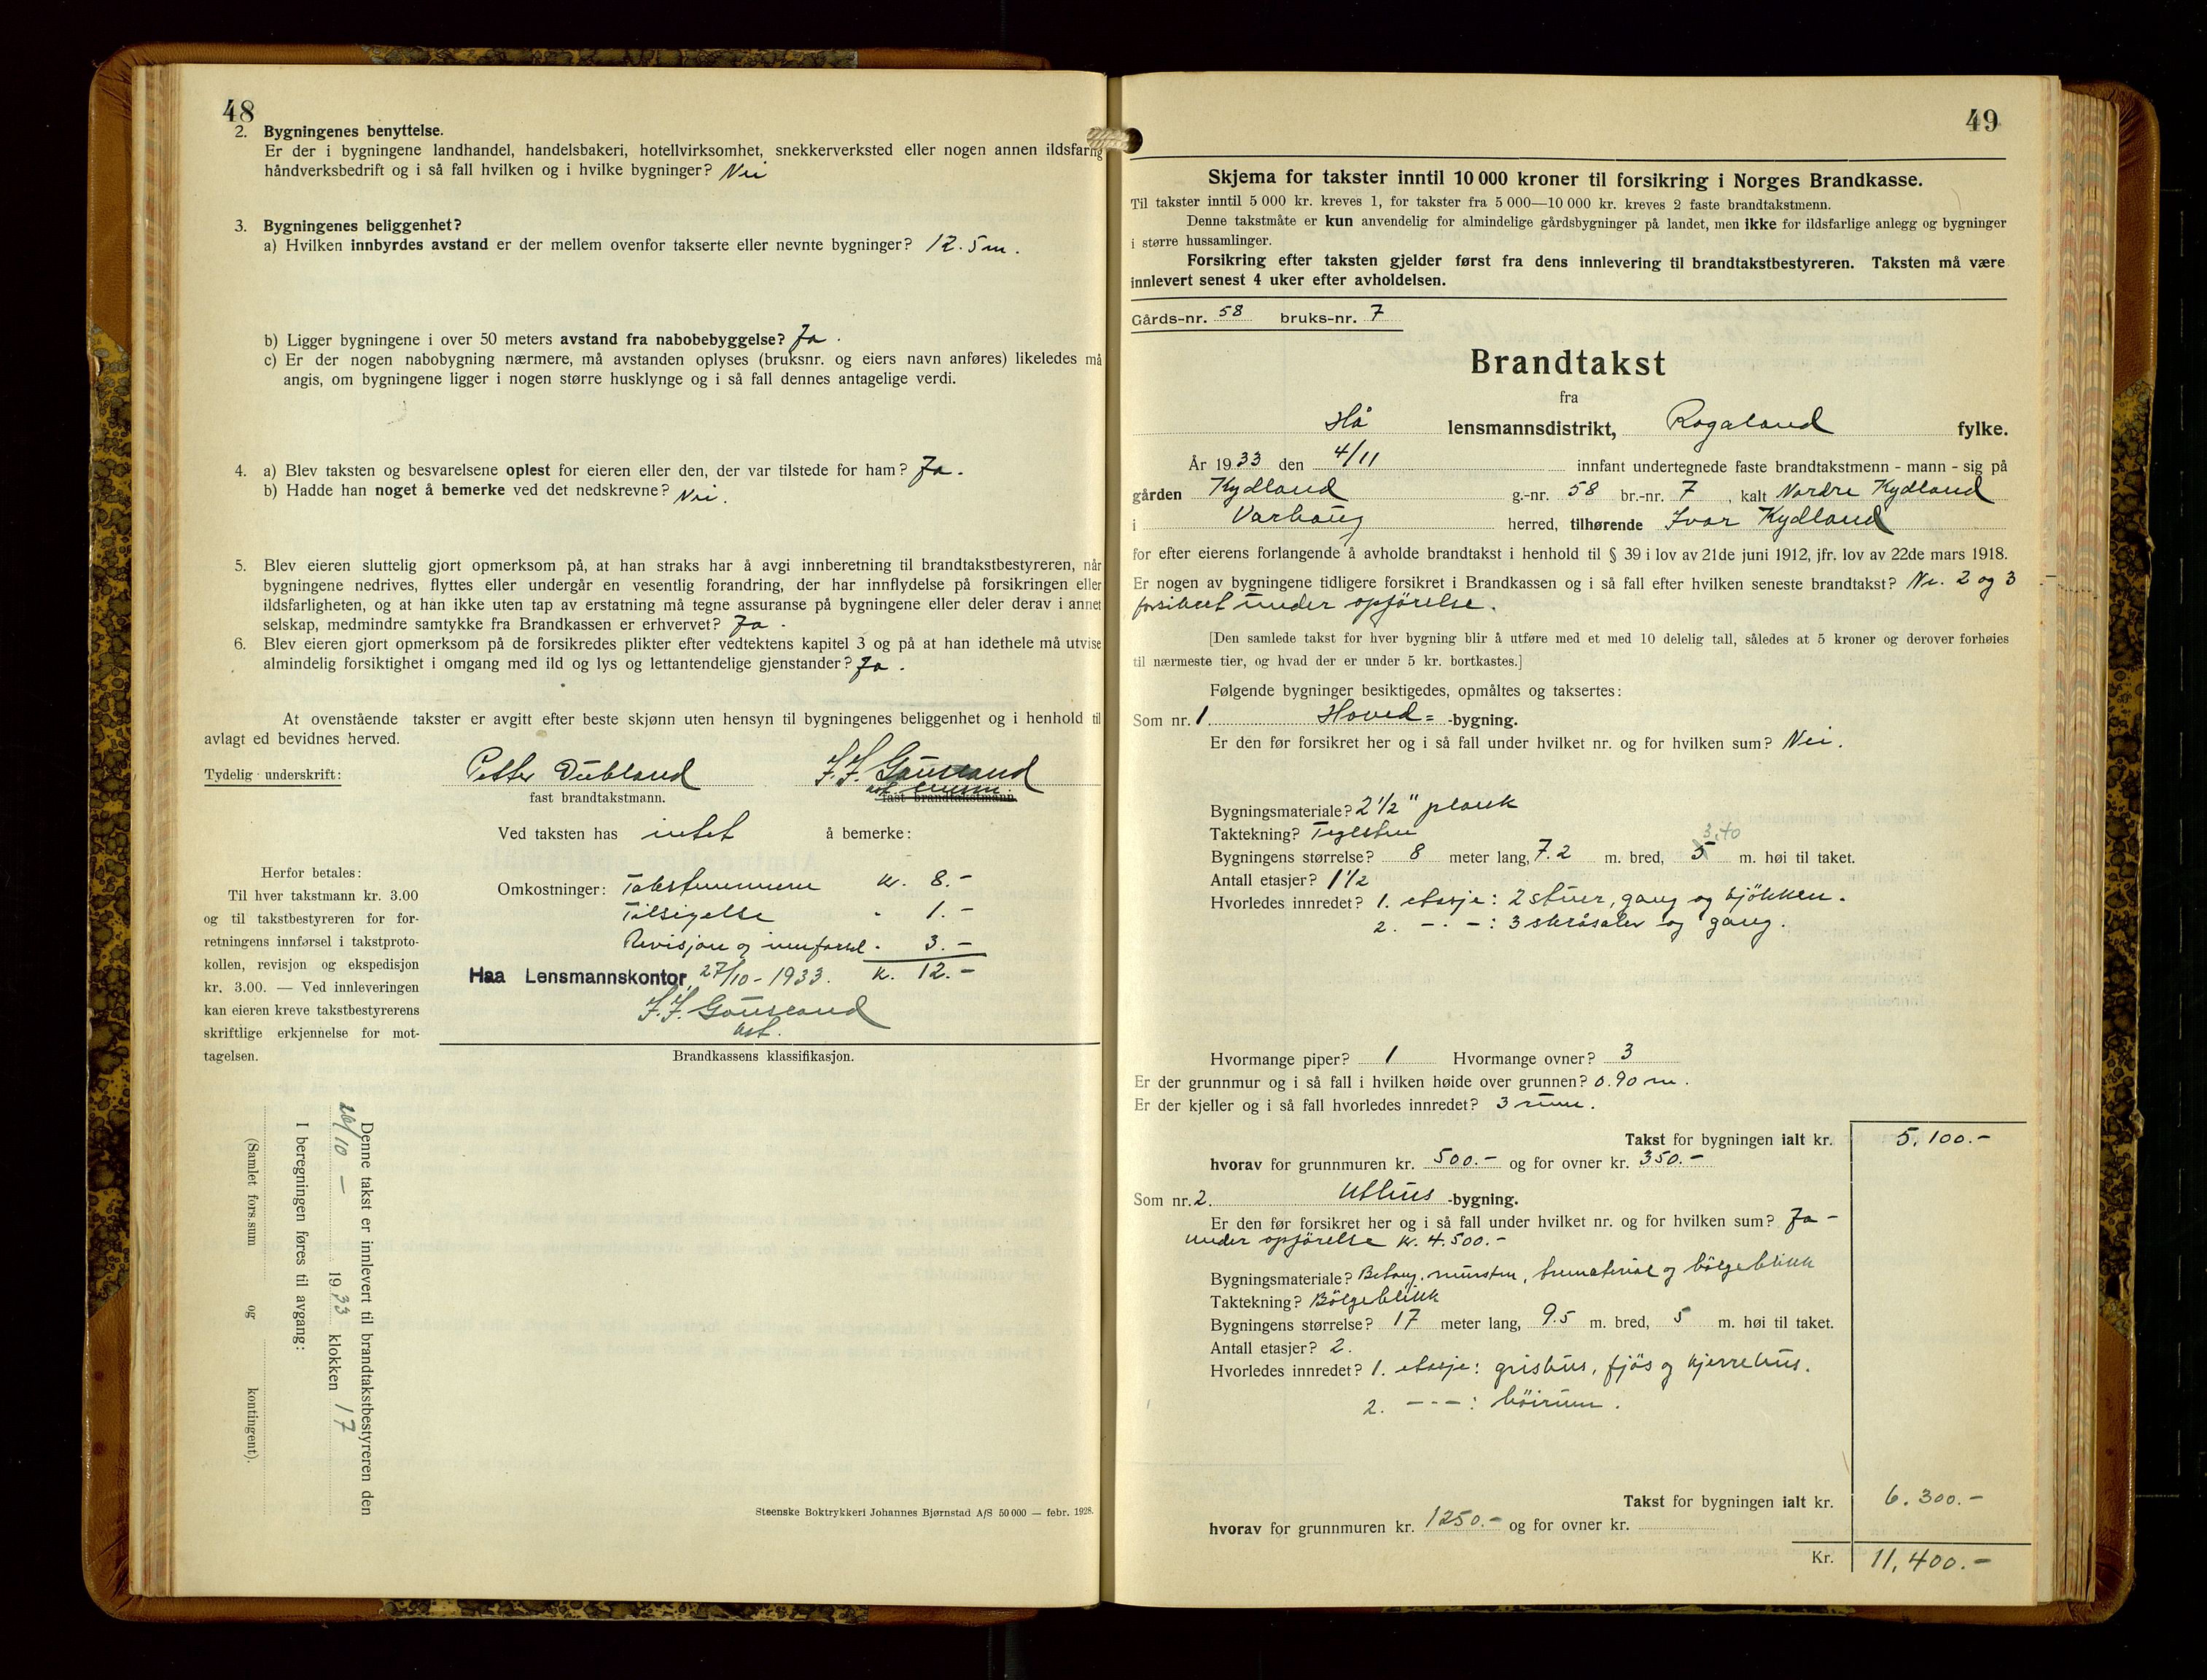 48
2. Bygningenes benyttelse.
Er der i bygningene landhandel, handelsbakeri, hotellvirksomhet, snekkerverksted eller nogen annen ildsfarlig
håndverksbedrift og i så fall hvilken og i hvilke bygninger? Nei
3. Bygningenes beliggenhet?
a) Hvilken innbyrdes avstand er der mellem ovenfor takserte eller nevnte bygninger? 12.5 m.
b) Ligger bygningene i over 50 meters avstand fra nabobebyggelse? Ja.
c) Er der nogen nabobygning nærmere, må avstanden oplyses (bruksnr. og eiers navn anføres) likeledes må
angis, om bygningene ligger i nogen større husklynge og i så fall dennes antagelige verdi.
4. a) Blev taksten og besvarelsene oplest for eieren eller den, der var tilstede for ham? Ja.
b) Hadde han noget å bemerke ved det nedskrevne? Nei.
5. Blev eieren sluttelig gjort opmerksom på, at han straks har å avgi innberetning til brandtakstbestyreren, når
bygningene nedrives, flyttes eller undergår en vesentlig forandring, der har innflydelse på forsikringen eller
ildsfarligheten, og at han ikke uten tap av erstatning må tegne assuranse på bygningene eller deler derav i annet
selskap, medmindre samtykke fra Brandkassen er erhvervet? Ja.
6. Blev eieren gjort opmerksom på de forsikredes plikter efter vedtektens kapitel 3 og på at han idethele må utvise
almindelig forsiktighet i omgang med ild og lys og lettantendelige gjenstander? Ja.
At ovenstående takster er avgitt efter beste skjønn uten hensyn til bygningenes beliggenhet og i henhold til
avlagt ed bevidnes herved.
Tydelig underskrift: Petter Dubland J. J. Gausland
fast brandtakstmann. fast brandtakstmann.
Ved taksten has intet å bemerke:
Omkostninger: Takstmennene kr. 8.-
Tilsigelse " 1.-
Revisjon og innførsel " 3.-
Haa Lensmannskontor, 27/10 - 1933. kr. 12.-
J. J. Gausland
ast.
Brandkassens klassifikasjon.
Herfor betales:
Til hver takstmann kr. 3.00
og til takstbestyreren for for-
retningens innførsel i takstproto-
kollen, revisjon og ekspedisjon
kr. 3.00. — Ved innleveringen
kan eieren kreve takstbestyrerens
skriftlige erkjennelse for mot-
tagelsen.
Denne takst er innlevert til brandtakstbestyreren den
26/10 - 1933 klokken 17
I beregningen føres til avgang:
(Samlet fors.sum og kontingent).
Steenske Boktrykkeri Johannes Bjørnstad A/S 50 000 — febr. 1928.
49
Skjema for takster inntil 10 000 kroner til forsikring i Norges Brandkasse.
Til takster inntil 5 000 kr. kreves 1, for takster fra 5 000—10 000 kr. kreves 2 faste brandtakstmenn.
Denne takstmåte er kun anvendelig for almindelige gårdsbygninger på landet, men ikke for ildsfarlige anlegg og bygninger
i større hussamlinger.
Forsikring efter taksten gjelder først fra dens innlevering til brandtakstbestyreren. Taksten må være
innlevert senest 4 uker efter avholdelsen.
Gårds-nr. 58 bruks-nr. 7
Brandtakst
fra
Hå lensmannsdistrikt, Rogaland fylke.
År 1933 den 4/11 innfant undertegnede faste brandtakstmenn - mann - sig på
gården Kydland g.-nr. 58 br.-nr. 7, kalt Nordre Kydland
i Varhaug herred, tilhørende Ivar Kydland
for efter eierens forlangende å avholde brandtakst i henhold til § 39 i lov av 21de juni 1912, jfr. lov av 22de mars 1918.
Er nogen av bygningene tidligere forsikret i Brandkassen og i så fall efter hvilken seneste brandtakst? Nr. 2 og 3
forsikret under opførelse.
[Den samlede takst for hver bygning blir å utføre med et med 10 delelig tall, således at 5 kroner og derover forhøies
til nærmeste tier, og hvad der er under 5 kr. bortkastes.]
Følgende bygninger besiktigedes, opmåltes og taksertes:
Som nr. 1 Hoved= -bygning.
Er den før forsikret her og i så fall under hvilket nr. og for hvilken sum? Nei.
Bygningsmateriale? 2 1/2" plank
Taktekning? Teglsten
3.40
Bygningens størrelse? 8 meter lang, 7.2 m. bred, 5 m. høi til taket.
Antall etasjer? 1 1/2
Hvorledes innredet? 1. etasje: 2 stuer, gang og kjökken.
2. - . - : 3 skråsaler og gang.
Hvormange piper? 1 Hvormange ovner? 3
Er der grunnmur og i så fall i hvilken høide over grunnen? 0.90 m.
Er der kjeller og i så fall hvorledes innredet? 3 rum.
Takst for bygningen ialt kr. 5.100.-
hvorav for grunnmuren kr. 500.- og for ovner kr. 350.-
Som nr. 2 Uthus -bygning.
Er den før forsikret her og i så fall under hvilket nr. og for hvilken sum? Ja -
under opförelse kr. 4.500.-
Bygningsmateriale? Betong, mursten, trematerial og bölgeblikk
Taktekning? Bölgeblikk
Bygningens størrelse? 17 meter lang, 9.5 m. bred, 5 m. høi til taket.
Antall etasjer? 2.
Hvorledes innredet? 1. etasje: grishus, fjös og kjerrehus.
2. - - - : höirum.
Takst for bygningen ialt kr. 6.300.-
hvorav for grunnmuren kr. 1250.- og for ovner kr.
Kr. 11,400.-